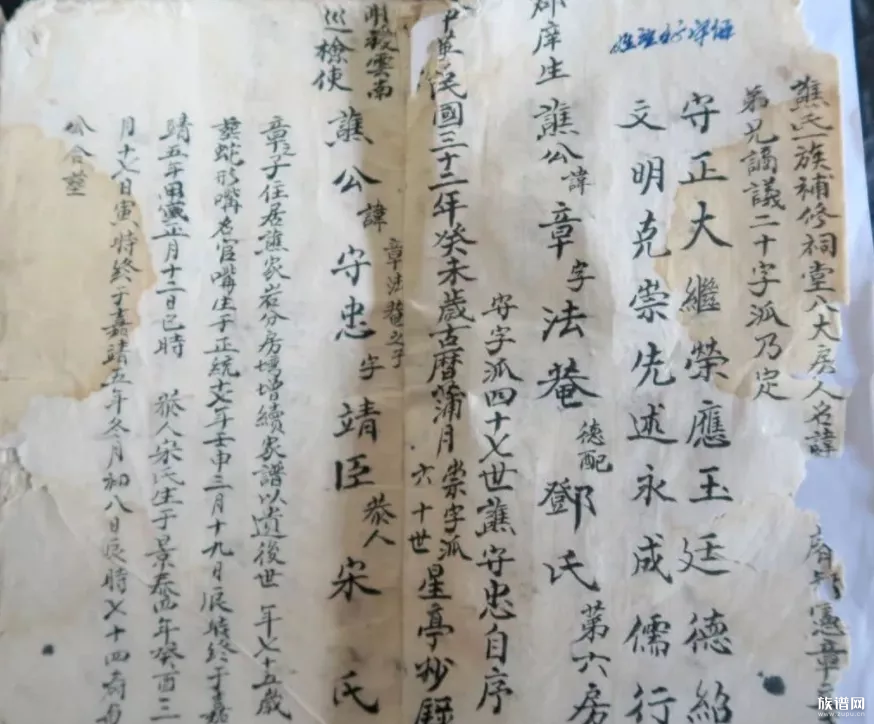 譙氏一族補修祠堂八大房人名諱
憲章
弟兄謫議二十字派乃定
守正大繼榮應玉廷德紹
文明克崇先述永成儒行
郡庠生 譙公諱章字法菴 德配鄧氏 第六房
守字派四十七世譙守忠自序
中華民國三十二年癸未歲古曆蒲月 崇字派六十世星亭抄錄
明教雲南巡檢使 譙公諱守忠字靖臣 恭人宋氏
章法菴之子
章之子住居譙家岩分房增續家譜以遺後世 年七十五歲
蛇形嘴名官嘴生于正統十七年壬申三月十九日辰時終于嘉
靖五年丙戌正月十二日巳時 恭人宋氏生于景泰四年癸酉三
月十七日寅時終于嘉靖五年冬月初八日辰時七十四歲
公合塟
族谱网
www.zupu.cn